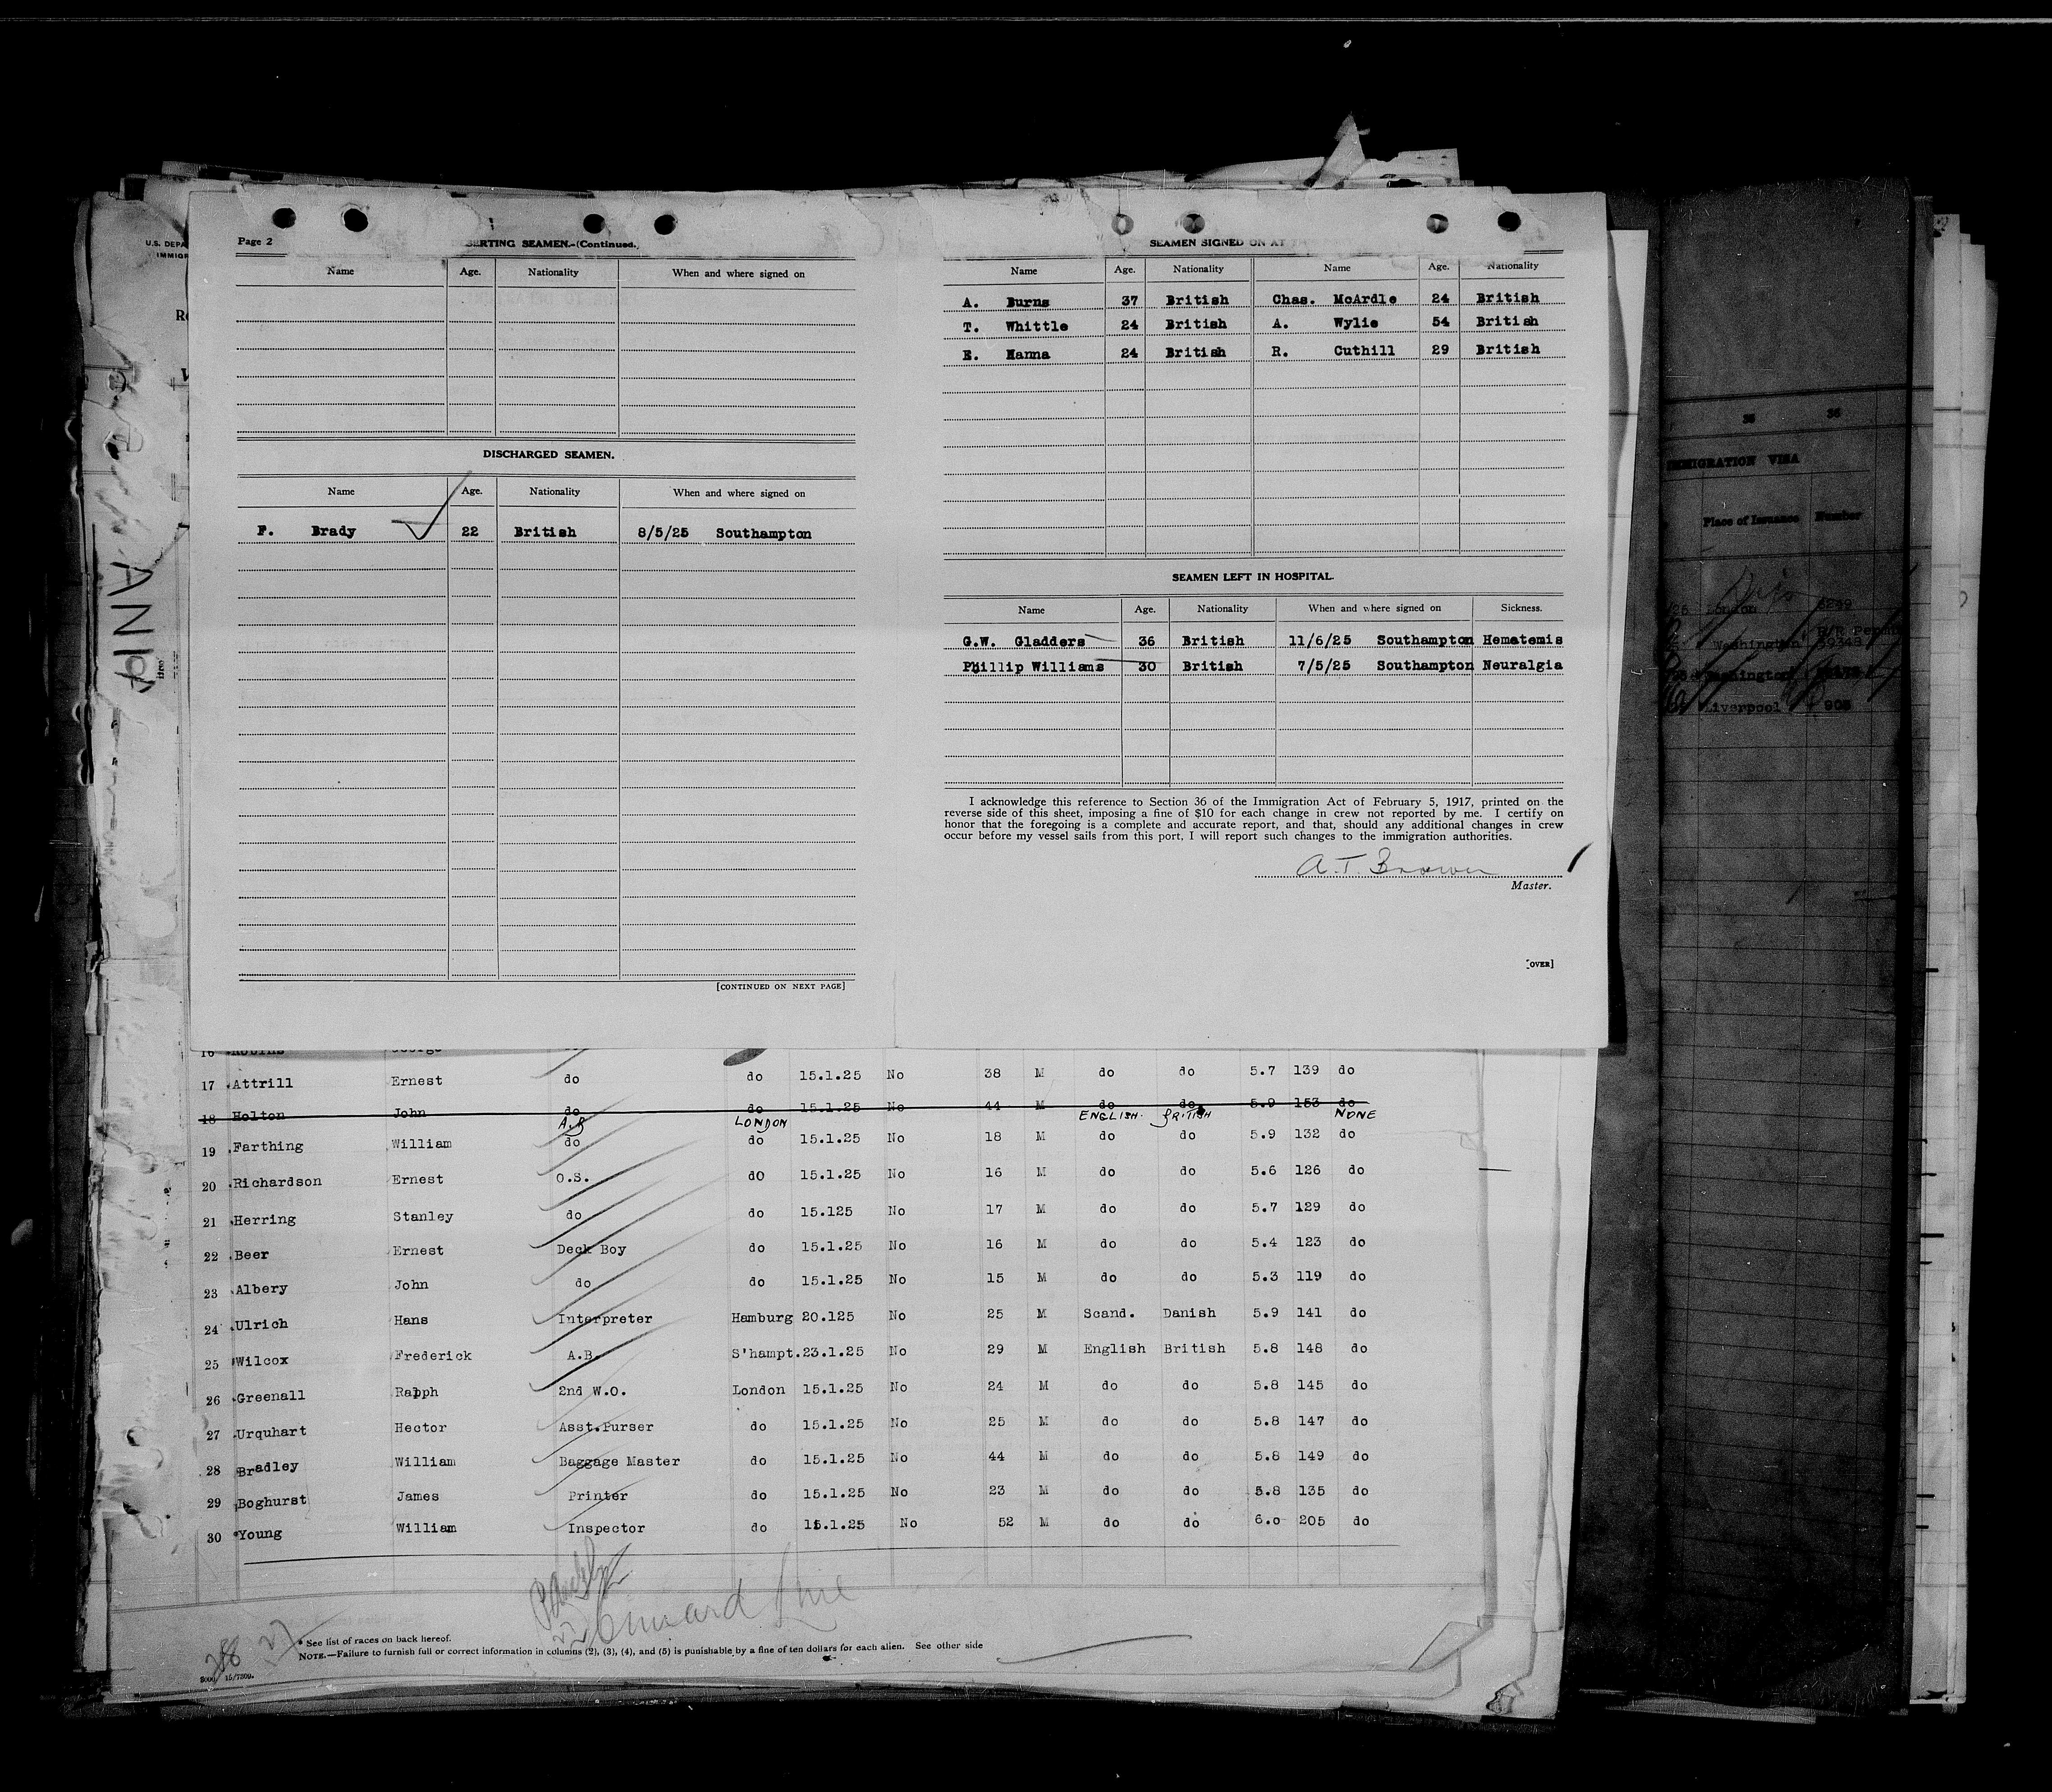 U.S. DEPA
IMMIGR
Page 2
SERTING SEAMEN.-(Continued.
Name Age. Nationality When and where signed on
DISCHARGED SEAMEN.
Name Age. Nationality When and where signed on
F. Brady 22 British 8/5/25 Southampton
[CONTINUED ON NEXT PAGE]
SEAMEN SIGNED ON AT
Name Age. Nationality Name Age. Nationality
A. Burns 37 British Chas. McArdle 24 British
T. Whittle 24 British A. Wylie 54 British
E. Hanna 24 British R. Cuthill 29 British
SEAMEN LEFT IN HOSPITAL.
Name Age. Nationality When and where signed on Sickness.
G.W. Gladders 36 British 11/6/25 Southampton Hematemis
Phillip Williams 30 British 7/5/25 Southampton Neuralgia
I acknowledge this reference to Section 36 of the Immigration Act of February 5, 1917, printed on the
reverse side of this sheet, imposing a fine of $10 for each change in crew not reported by me. I certify on
honor that the foregoing is a complete and accurate report, and that, should any additional changes in crew
occur before my vessel sails from this port, I will report such changes to the immigration authorities.
A.T. Brown
Master.
[OVER]
35 36
IMMIGRATION VISA
Place of Issuance Number
London
Washington 39348
Washington
Liverpool 905
16
17 Attrill Ernest do do 15.1.25 No 38 M do do 5.7 139 do
18 Holton John do do 15.1.25 No 44 M do do 5.9 153 do
A.B LONDON ENGLISH. BRITISH NONE
19 Farthing William do do 15.1.25 No 18 M do do 5.9 132 do
20 Richardson Ernest O.S. dO 15.1.25 No 16 M do do 5.6 126 do
21 Herring Stanley do do 15.125 No 17 M do do 5.7 129 do
22 Beer Ernest Deck Boy do 15.1.25 No 16 M do do 5.4 123 do
23 Albery John do do 15.1.25 No 15 M do do 5.3 119 do
24 Ulrich Hans Interpreter Hamburg 20.125 No 25 M Scand. Danish 5.9 141 do
25 Wilcox Frederick A.B. S'hampt. 23.1.25 No 29 M English British 5.8 148 do
26 Greenall Ralph 2nd W.O. London 15.1.25 No 24 M do do 5.8 145 do
27 Urquhart Hector Asst.Purser do 15.1.25 No 25 M do do 5.8 147 do
28 Bradley William Baggage Master do 15.1.25 No 44 M do do 5.8 149 do
29 Boghurst James Printer do 15.1.25 No 23 M do do 5.8 135 do
30 Young William Inspector do 15.1.25 No 52 M do do 6.0 205 do
Cunard Line
* See list of races on back hereof.
NOTE.—Failure to furnish full or correct information in columns (2), (3), (4), and (5) is punishable by a fine of ten dollars for each alien. See other side